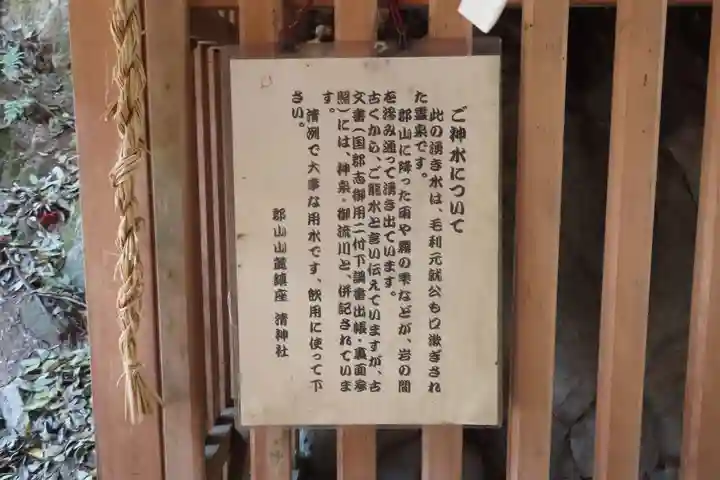 ご神水について
此の湧き水は、毛利元就公も口漱ぎされ
た霊泉です。
郡山に降った雨や霧の雫などが、岩の間
を滲み通って湧き出ています。
古くから、ご龍水と言い伝えていますが、古
文書(国郡志御用ニ付下調書出帳・裏面参
照)には、神泉・御流川と、併記されていま
す。
清冽で大事な用水です、飲用に使って下
さい。
郡山山麓鎮座 清神社